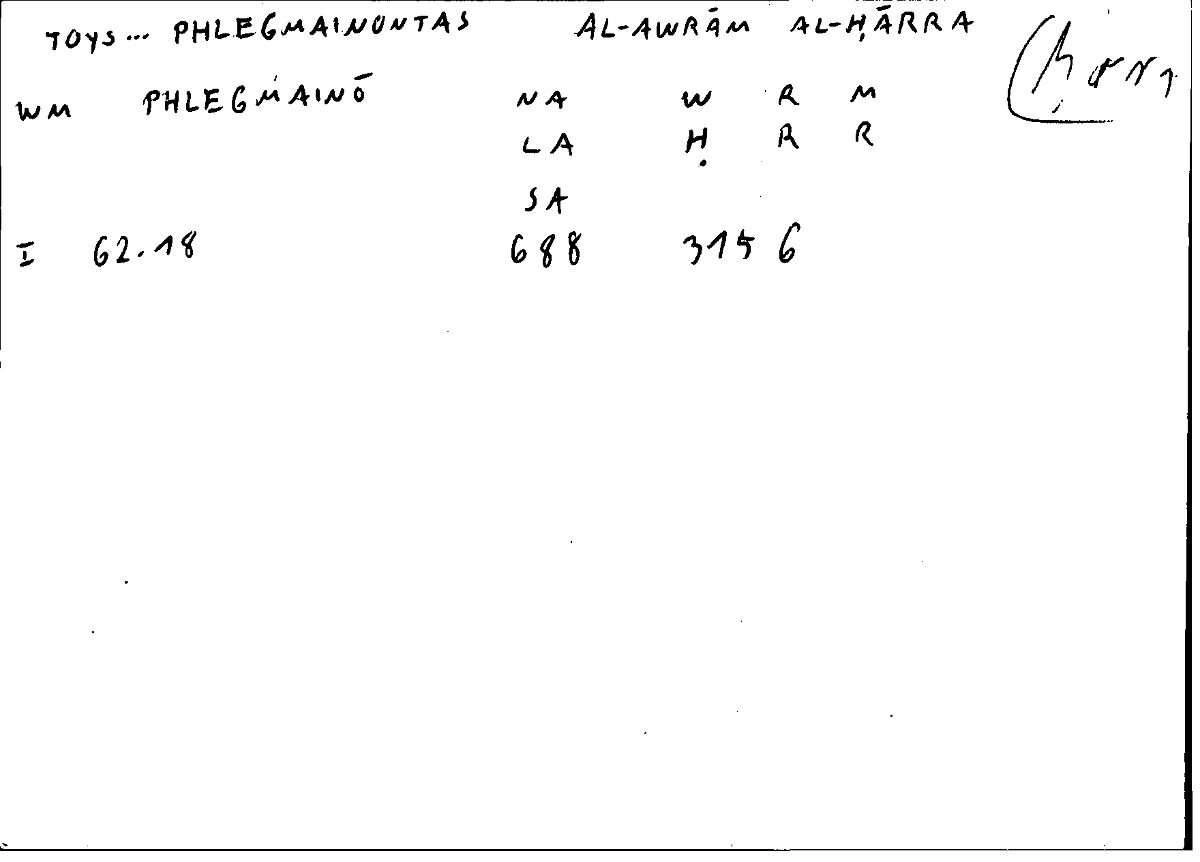 TOYS... PHLEGMAINONTAS AL-AWRĀM AL-ḤĀRRA
WM PHLEGMAINŌ NA W R M
LA Ḥ R R
SA
I 62.18 688 315 6